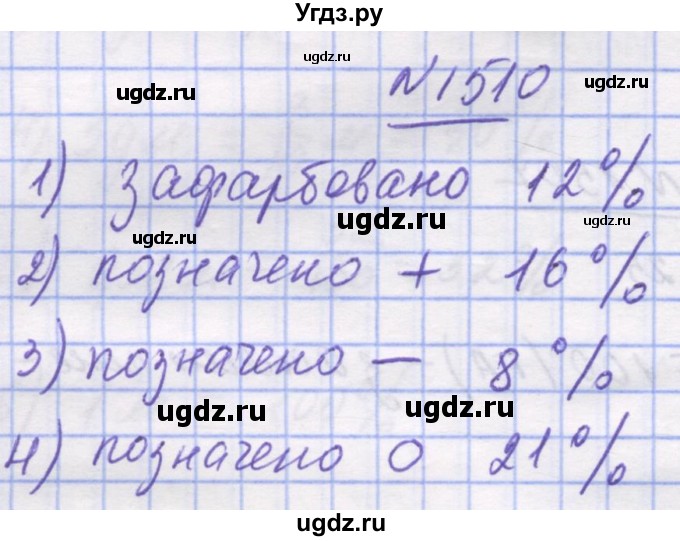 Угдз.ру
ugdz.ru
ugdz.ru ugdz.ru
№1510
1) зафарбовано 12%
ugdz.ru ugdz.ru
ugdz.ru
2) позначено + 16%
ugdz.ru
3) позначено — 8%
ugdz.ru ugdz.ru
4) позначено 0 21%
ugdz.ru